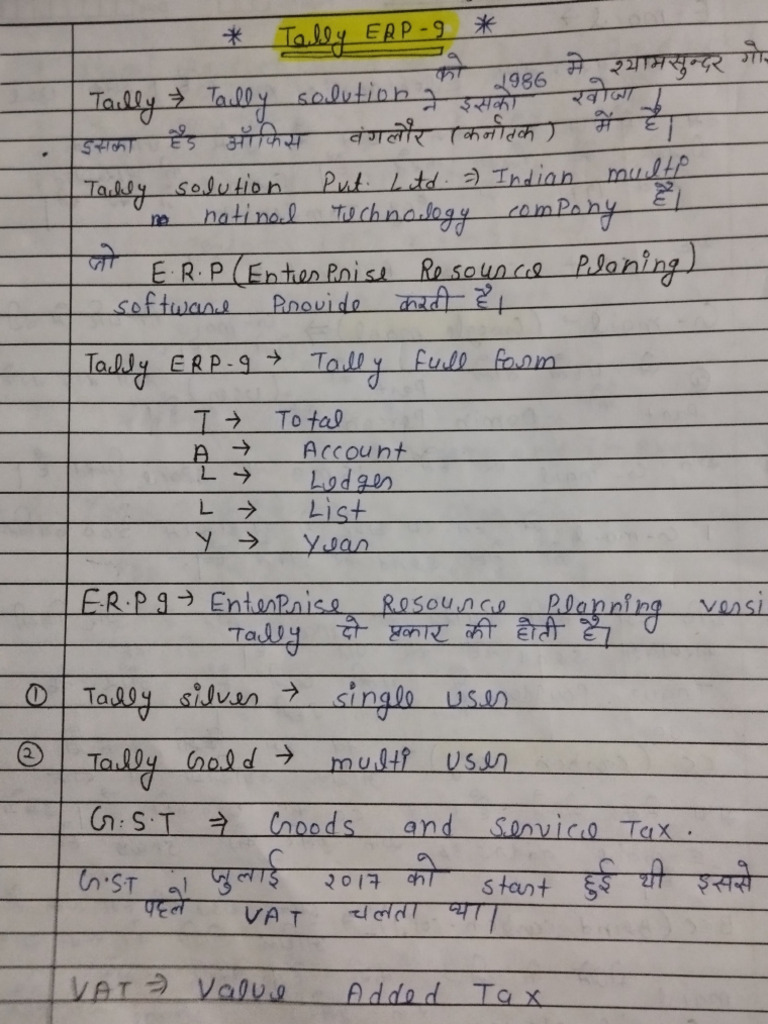 * Tally ERP-9 *
को 1986 में श्यामसुन्दर
Tally → Tally solution ने इसको खोजा।
इसका हैड ऑफिस बंगलौर (कर्नातक) में है।
Tally solution Pvt. Ltd. ⇒ Indian multi
natinal Technology company है।
जो E.R.P (Enterprise Resource Planing)
software Provide करती है।
Tally ERP-9 → Tally full form
T → Total
A → Account
L → Ledger
L → List
Y → Year
E.R.P 9 → Enterprise Resource Planning versi
Tally दो प्रकार की होती है।
① Tally silver → single user
② Tally Gold → multi user
G.S.T ⇒ Goods and Service Tax.
G.S.T 1 जुलाई 2017 को start हुई थी इससे
पहले VAT चलता था।
VAT ⇒ Value Added Tax